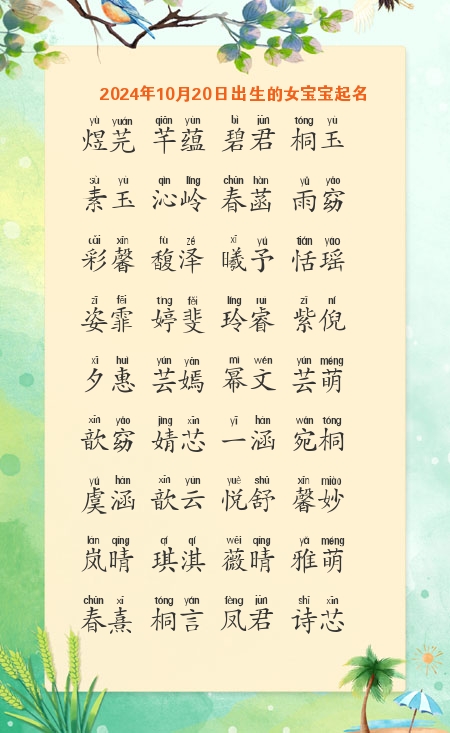 2024年10月20日出生的女宝宝起名
yù yuán qiān yùn bì jūn tóng yù
煜芫 芊蕴 碧君 桐玉
sù yù qìn lǐng chūn hàn yǔ yǎo
素玉 沁岭 春菡 雨窈
cǎi xīn fù zé xī yú tián yáo
彩馨 馥泽 曦予 恬瑶
zī fēi tíng fěi líng ruì zǐ ní
姿霏 婷斐 玲睿 紫倪
xī huì yún yān mì wén yún méng
夕惠 芸嫣 幂文 芸萌
xīn yǎo jìng xīn yī hán wǎn tóng
歆窈 婧芯 一涵 宛桐
yú hán xīn yún yuè shū xīn miào
虞涵 歆云 悦舒 馨妙
lán qíng qí qí wēi qíng yǎ méng
岚晴 琪淇 薇晴 雅萌
chūn xī tóng yán fèng jūn shī xīn
春熹 桐言 凤君 诗芯